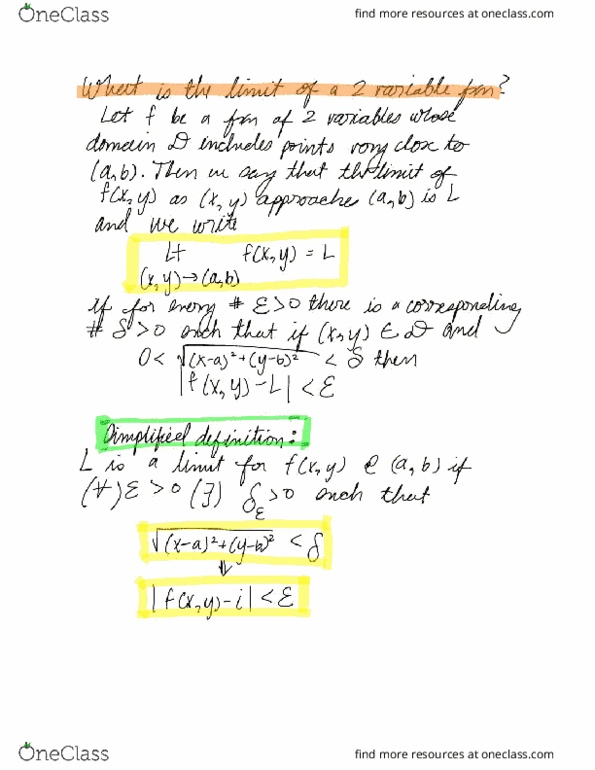 OneClass
find more resources at oneclass.com
What is the limit of a 2 variable fxn?
Let f be a fxn of 2 variables whose
domain D includes points very close to
(a,b). Then we say that the limit of
f(x,y) as (x,y) approaches (a,b) is L
and we write
Lt f(x,y) = L
(x,y)→(a,b)
if for every # ε>0 there is a corresponding
# δ>0 such that if (x,y) ∈ D and
0< √(x-a)²+(y-b)² < δ then
|f(x,y)-L| < ε
Simplified definition:
L is a limit for f(x,y) @ (a,b) if
(∀)ε>0 (∃) δε>0 such that
√(x-a)²+(y-b)² < δ
⇓
|f(x,y)-i| < ε
OneClass
find more resources at oneclass.com